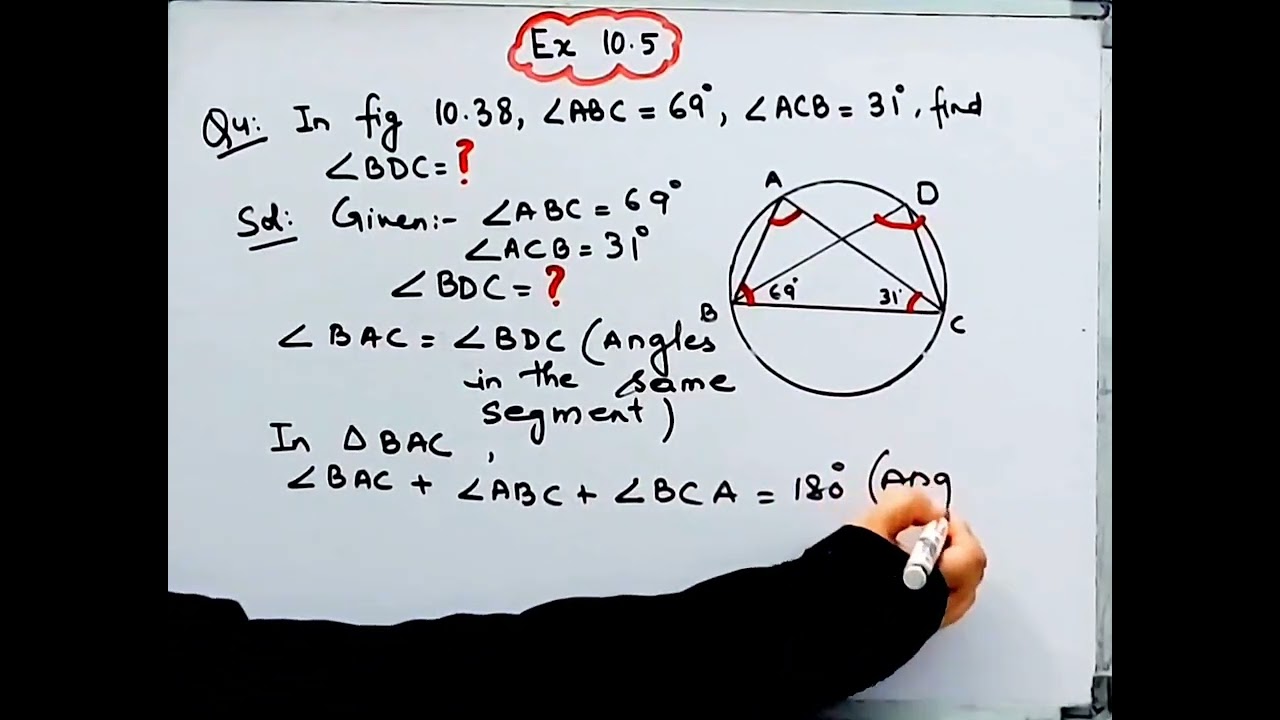 Ex 10.5
Q4: In fig 10.38, ∠ABC = 69°, ∠ACB = 31°, find
∠BDC = ?
Sol: Given:- ∠ABC = 69°
∠ACB = 31°
∠BDC = ?
∠BAC = ∠BDC (Angles
in the same
segment)
In △BAC,
∠BAC + ∠ABC + ∠BCA = 180° (Ang
A
D
69°
31°
B
C